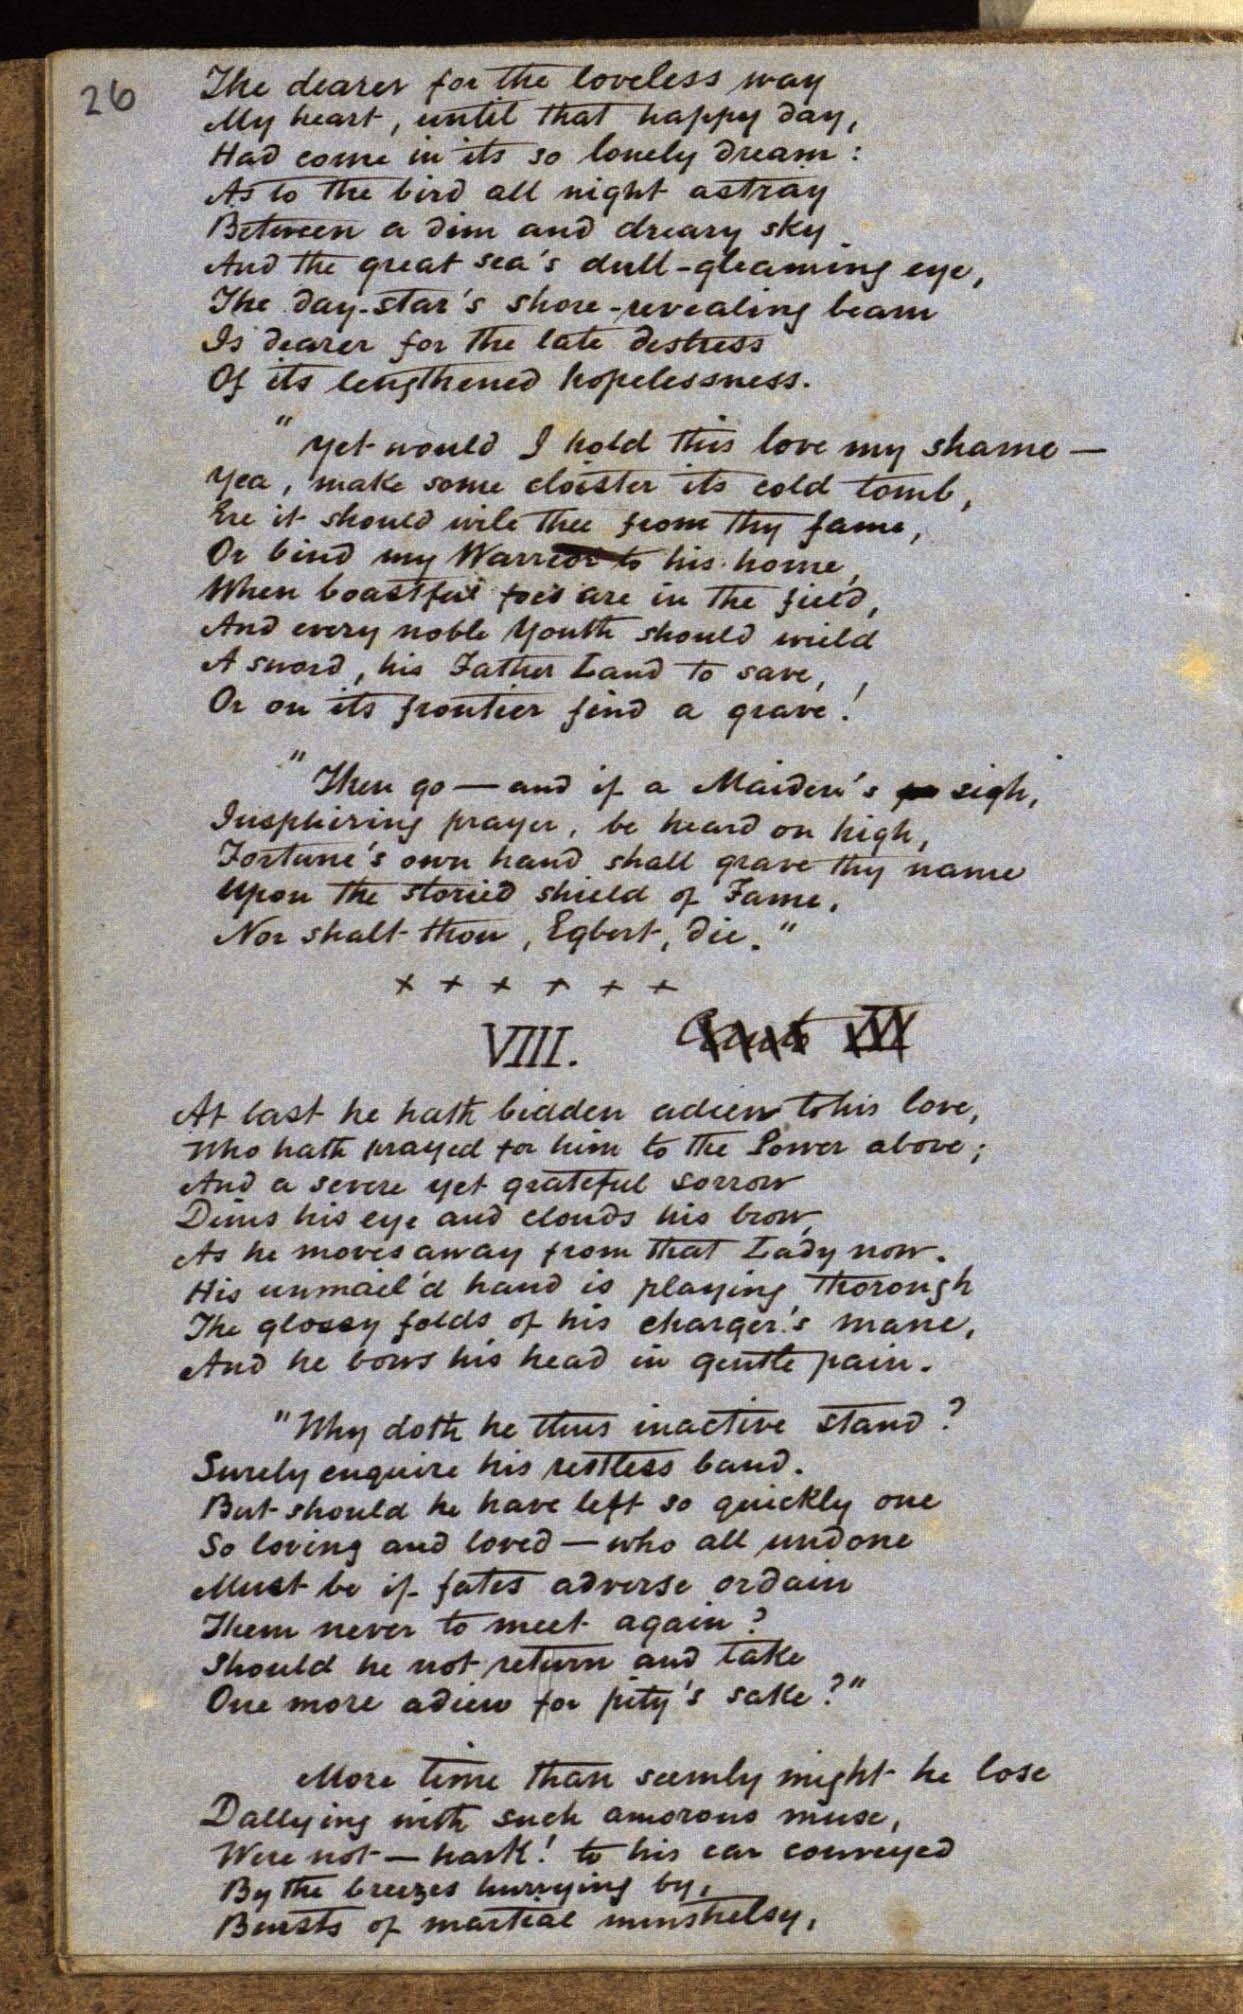 26
The dearer for the loveless way
My heart, until that happy day,
Had come in its so lonely dream:
As to the bird all night astray
Between a dim and dreary sky
And the great sea's dull-gleaming eye,
The day-star's shore-revealing beam
Is dearer for the late distress
Of its lengthened hopelessness.
"Yet would I hold this love my shame —
Yea, make some cloister its cold tomb,
Ere it should wile thee from thy fame,
Or bind my Warrior to his home,
When boastful foes are in the field,
And every noble Youth should wield
A sword, his Father Land to save,
Or on its frontier find a grave!
"Then go — and if a Maiden's sigh,
Insphiring prayer, be heard on high,
Fortune's own hand shall grave thy name
Upon the storied shield of Fame.
Nor shalt thou, Egbert, die."
+ + + + + +
VIII. Canto III
At last he hath bidden adieu to his love,
Who hath prayed for him to the Power above;
And a severe yet grateful sorrow
Dims his eye and clouds his brow,
As he moves away from that Lady now.
His unmail'd hand is playing thorough
The glossy folds of his charger's mane,
And he bows his head in gentle pain.
"Why doth he thus inactive stand?
Surely enquire his restless band.
But should he have left so quickly one
So loving and loved — who all undone
Must be if fates adverse ordain
Them never to meet again?
Should he not return and take
One more adieu for pity's sake?"
More time than seemly might he lose
Dallying with such amorous muse,
Were not — hark! to his ear conveyed
By the breezes hurrying by,
Bursts of martial minstrelsy,